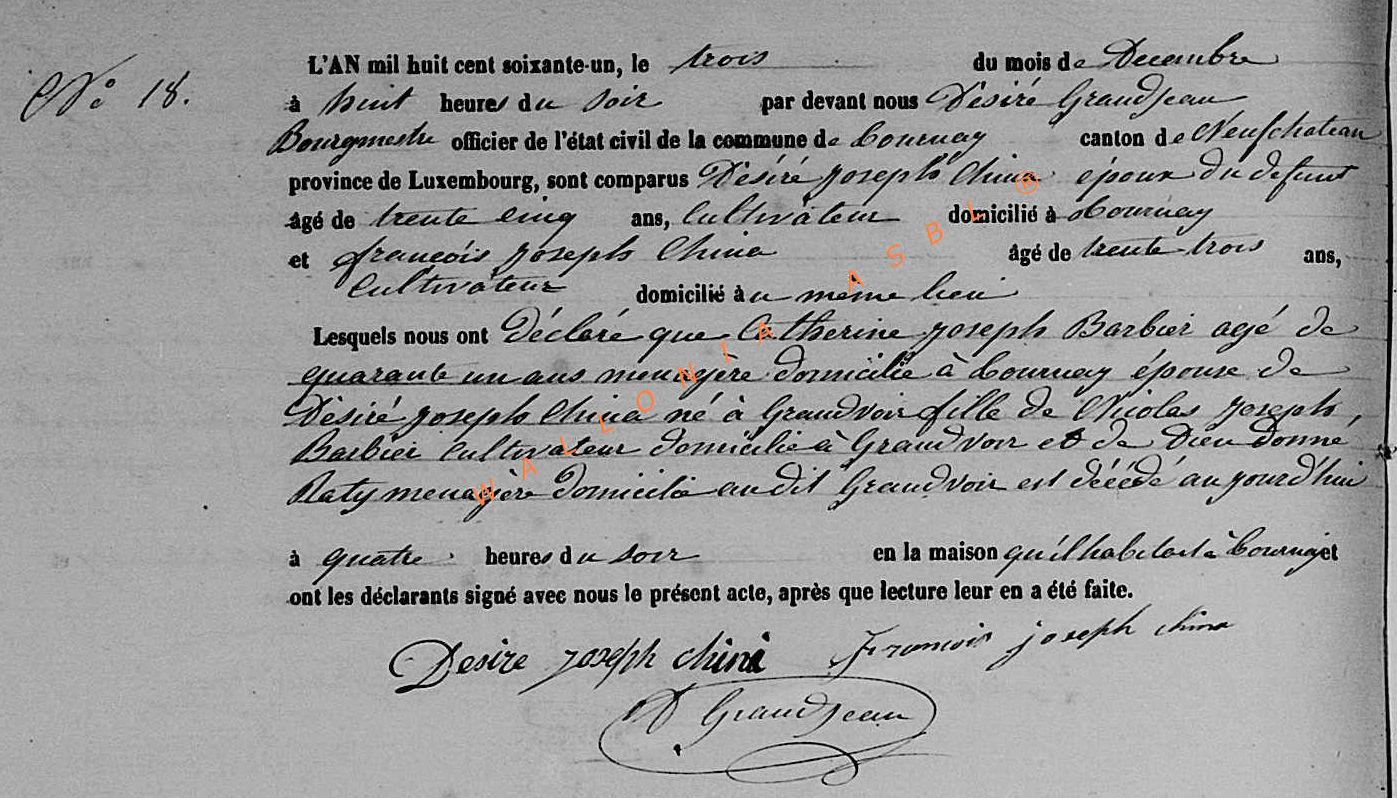 N° 18.
L'AN mil huit cent soixante-un, le trois du mois de Decembre
à huit heures du soir par devant nous Désiré Grandjean
Bourgmestre officier de l'état civil de la commune de Tournay canton de Neufchateau
province de Luxembourg, sont comparus Désiré joseph China époux du defunt
âgé de trente cinq ans, Cultivateur domicilié à Tournay
et françois joseph China âgé de trente trois ans,
Cultivateur domicilié àu même lieu
Lesquels nous ont Déclaré que Catherine joseph Barbier agé de
quarante un ans menagère domicilié à Tournay épouse de
Désiré joseph China né à Grandvoir fille de Nicolas joseph
Barbier Cultivateur domicilié à Grandvoir et de Dieu donné
Raty menagère domicilié audit Grandvoir est décédé aujourd'hui
à quatre heures du soir en la maison qu'il habitait à Tournay et
ont les déclarants signé avec nous le présent acte, après que lecture leur en a été faite.
Desire joseph china francois joseph china
D Grandjean
WALLONIA ASBL ®